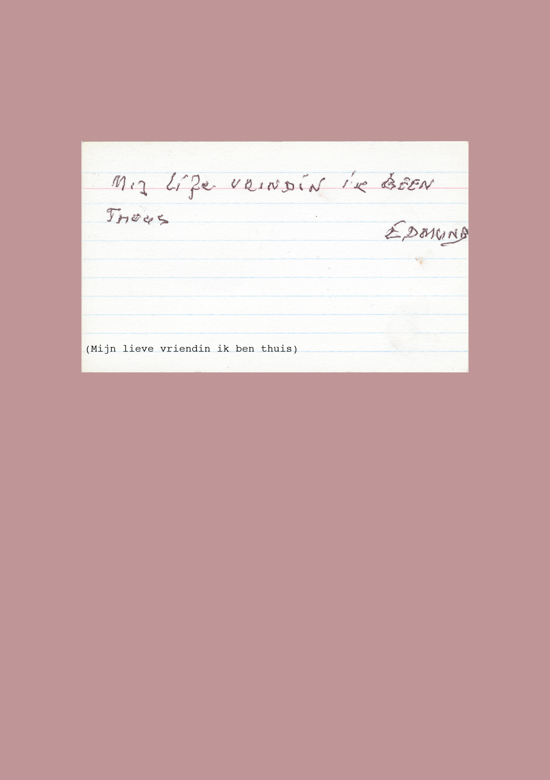 Mij life VRINDIN ik BEEN
THOUS
EDMUND
(Mijn lieve vriendin ik ben thuis)